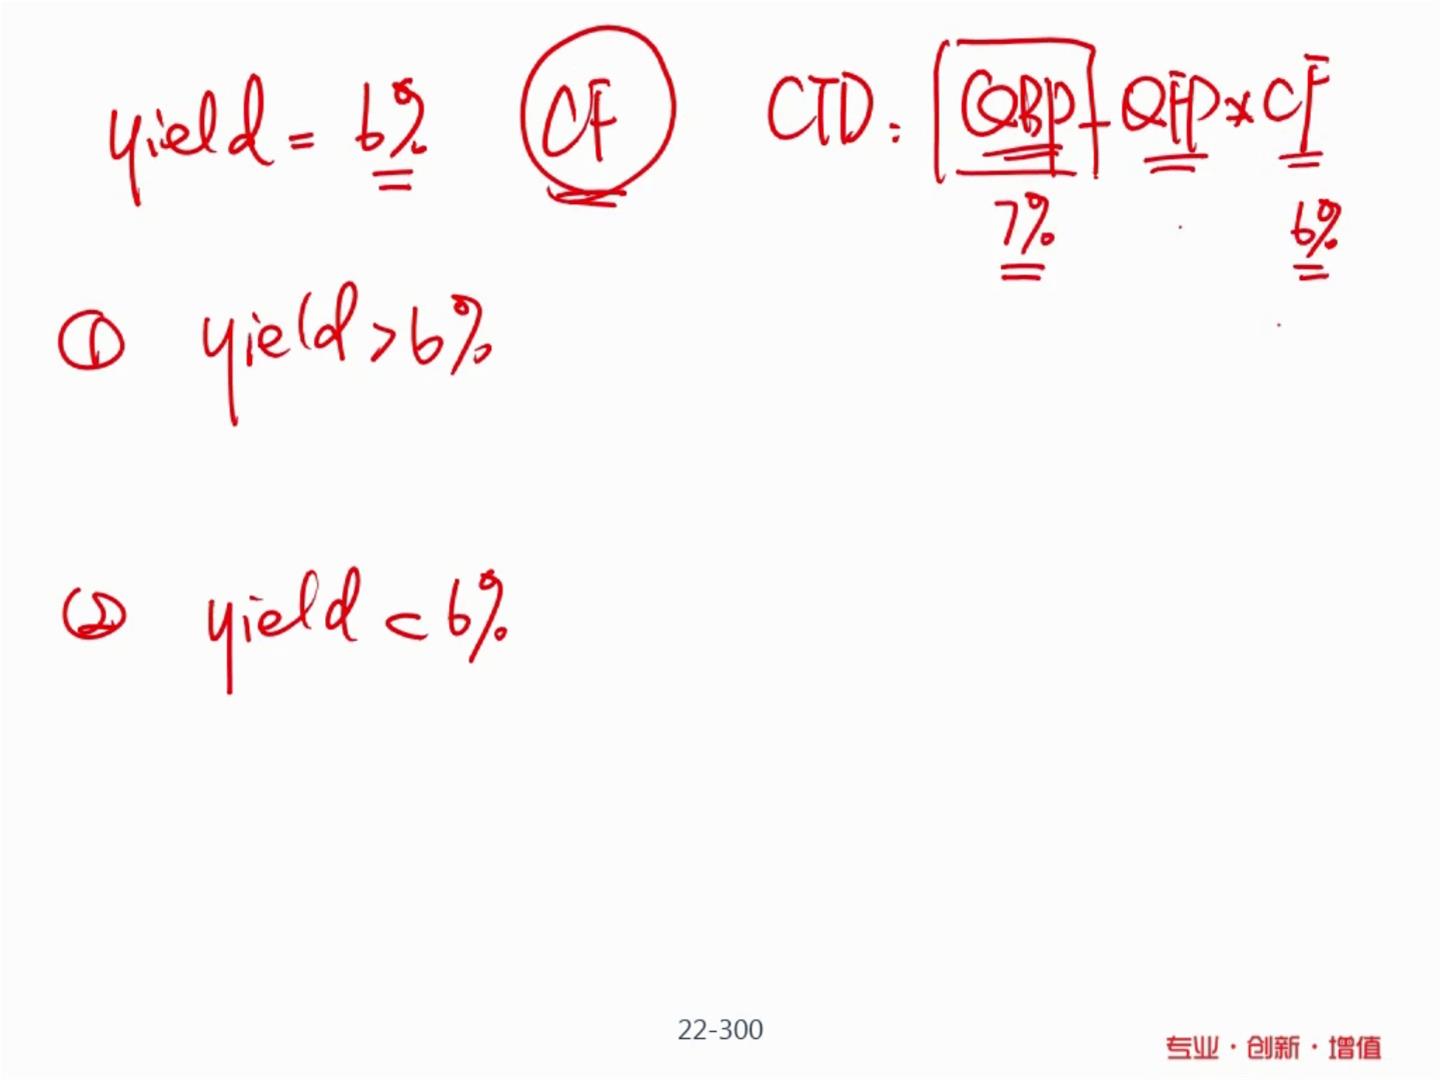 yield = 6% CF CTD: QBP - QFP × CF
7% 6%
① yield > 6%
② yield < 6%
22-300
专业·创新·增值